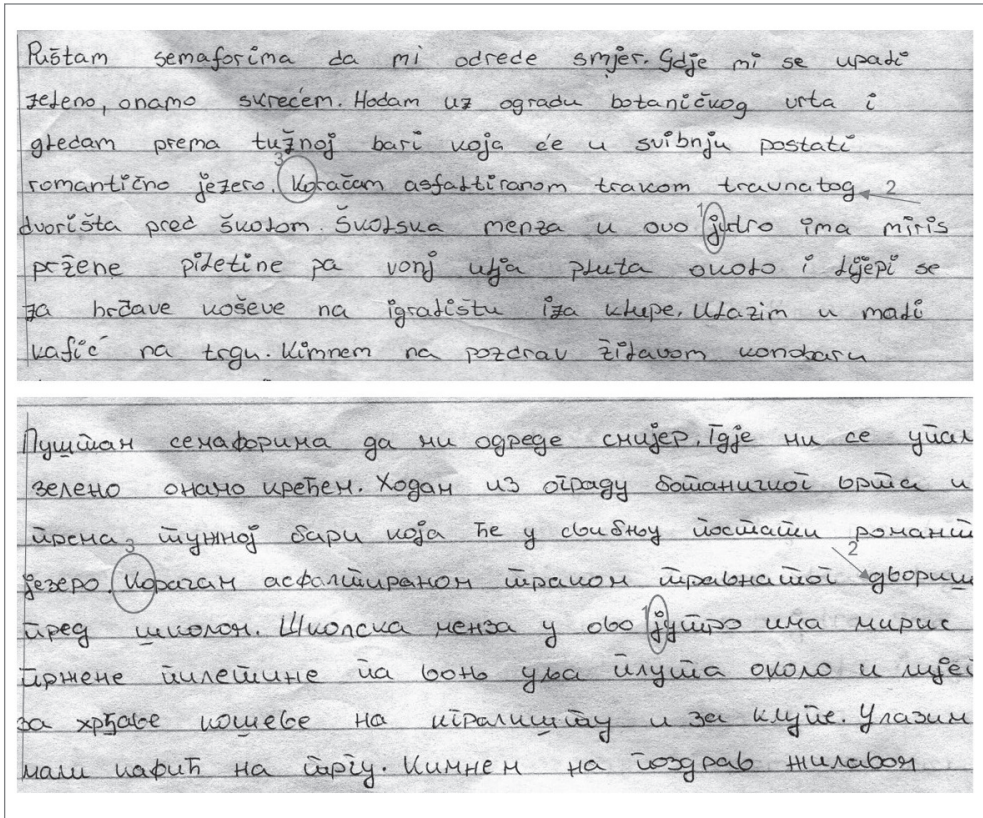 Puštam semaforima da mi odrede smjer. Gdje mi se upali
zeleno, onamo skrećem. Hodam uz ogradu botaničkog vrta i
gledam prema tužnoj bari koja će u svibnju postati
3
romantično jezero. Koračam asfaltiranom trakom travnatog 2
1
dvorišta pred školom. Školska menza u ovo jutro ima miris
pržene piletine pa vonj ulja pluta okolo i lijepi se
za hrđave koševe na igralištu iza klupe. Ulazim u mali
kafić na trgu. Kimnem na pozdrav žilavom konobaru
Пуштам семафорима да ми одреде смијер. Гдје ми се упал
зелено онамо крећем. Ходам из ограду ботаничког врта и
према тужној бари која ће у свибњу постати романт
3 2
језеро. Корачам асфалтираном траком травнатог двориш
1
пред школом. Школска менза у ово јутро има мирис
пржене пилетине па воњ уља плута около и лијеп
за хрђаве кошеве на игралишту и за клупе. Улазим
мали кафић на тргу. Кимнем на поздрав жилавом